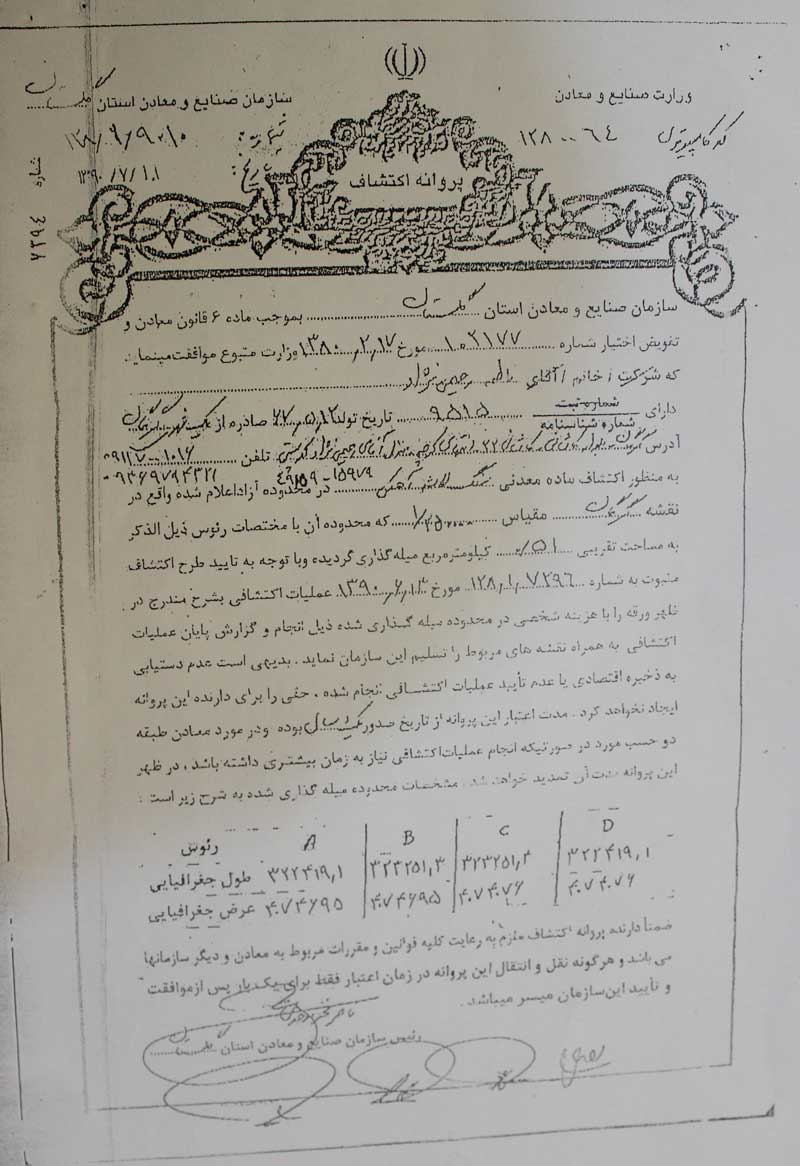 وزارت صنایع و معادن
سازمان صنایع و معادن استان گلستان
کد کامپیوتری ۱۲۸۰۰۶۴
شماره ۷۳۹۴
۱۳۹۰/۷/۱۸
پروانه اکتشاف
سازمان صنایع و معادن استان گلستان بموجب ماده ۶ قانون معادن و
تفویض اختیار شماره ۱۰۲۱۷۷ مورخ ۱۳۸۰/۲/۱۷ وزارت متبوع موافقت مینماید
که شرکت / خانم / آقای
دارای شماره ثبت / شماره شناسنامه ۹۵۱۵ تاریخ تولد ۶۷/۵/۱۲ صادره از
آدرس تلفن ۰۹۱۱۷۰۰۱۰۱۶
۰۹۳۶۹۷۹۴۳۲۱
به منظور اکتشاف ماده معدنی سنگ لاشه آهکی در محدوده آزاد اعلام شده واقع در
نقشه گرگان مقیاس که محدوده آن با مختصات رئوس ذیل الذکر
به مساحت تقریبی ۰/۵۱ کیلومترمربع میله گذاری گردیده وبا توجه به تایید طرح اکتشاف
مثبوت به شماره ۱۲۸/۱/۷۲۹۶ مورخ ۱۳۹۰/۶/۱۳ عملیات اکتشافی بشرح مندرج در
ظهر ورقه را با هزینه شخصی در محدوده میله گذاری شده ذیل انجام و گزارش پایان عملیات
اکتشافی به همراه نقشه های مربوط را تسلیم این سازمان نماید . بدیهی است عدم دستیابی
به ذخیره اقتصادی یا عدم تأیید عملیات اکتشافی انجام شده ، حقی را برای دارنده این پروانه
ایجاد نخواهد کرد . مدت اعتبار این پروانه از تاریخ صدور یکسال بوده ودر مورد معادن طبقه
دو حسب مورد در صورتیکه انجام عملیات اکتشافی نیاز به زمان بیشتری داشته باشد ، در ظهر
این پروانه مدت آن تمدید خواهد شد . مشخصات محدوده میله گذاری شده به شرح زیر است :
رئوس A B C D
طول جغرافیایی ۳۲۲۴۱۹,۱ ۳۲۳۲۵۱,۳ ۳۲۳۲۵۱,۳ ۳۲۲۴۱۹,۱
عرض جغرافیایی ۴۰۷۴۶۹۵ ۴۰۷۴۶۹۵ ۴۰۷۴۰۷۶ ۴۰۷۴۰۷۶
ضمناً دارنده پروانه اکتشاف ملزم به رعایت کلیه قوانین و مقررات مربوط به معادن و دیگر سازمانها
می باشد و هرگونه نقل و انتقال این پروانه در زمان اعتبار فقط برای یک بار پس از موافقت
و تأیید این سازمان میسر میباشد .
رئیس سازمان صنایع و معادن استان گلستان